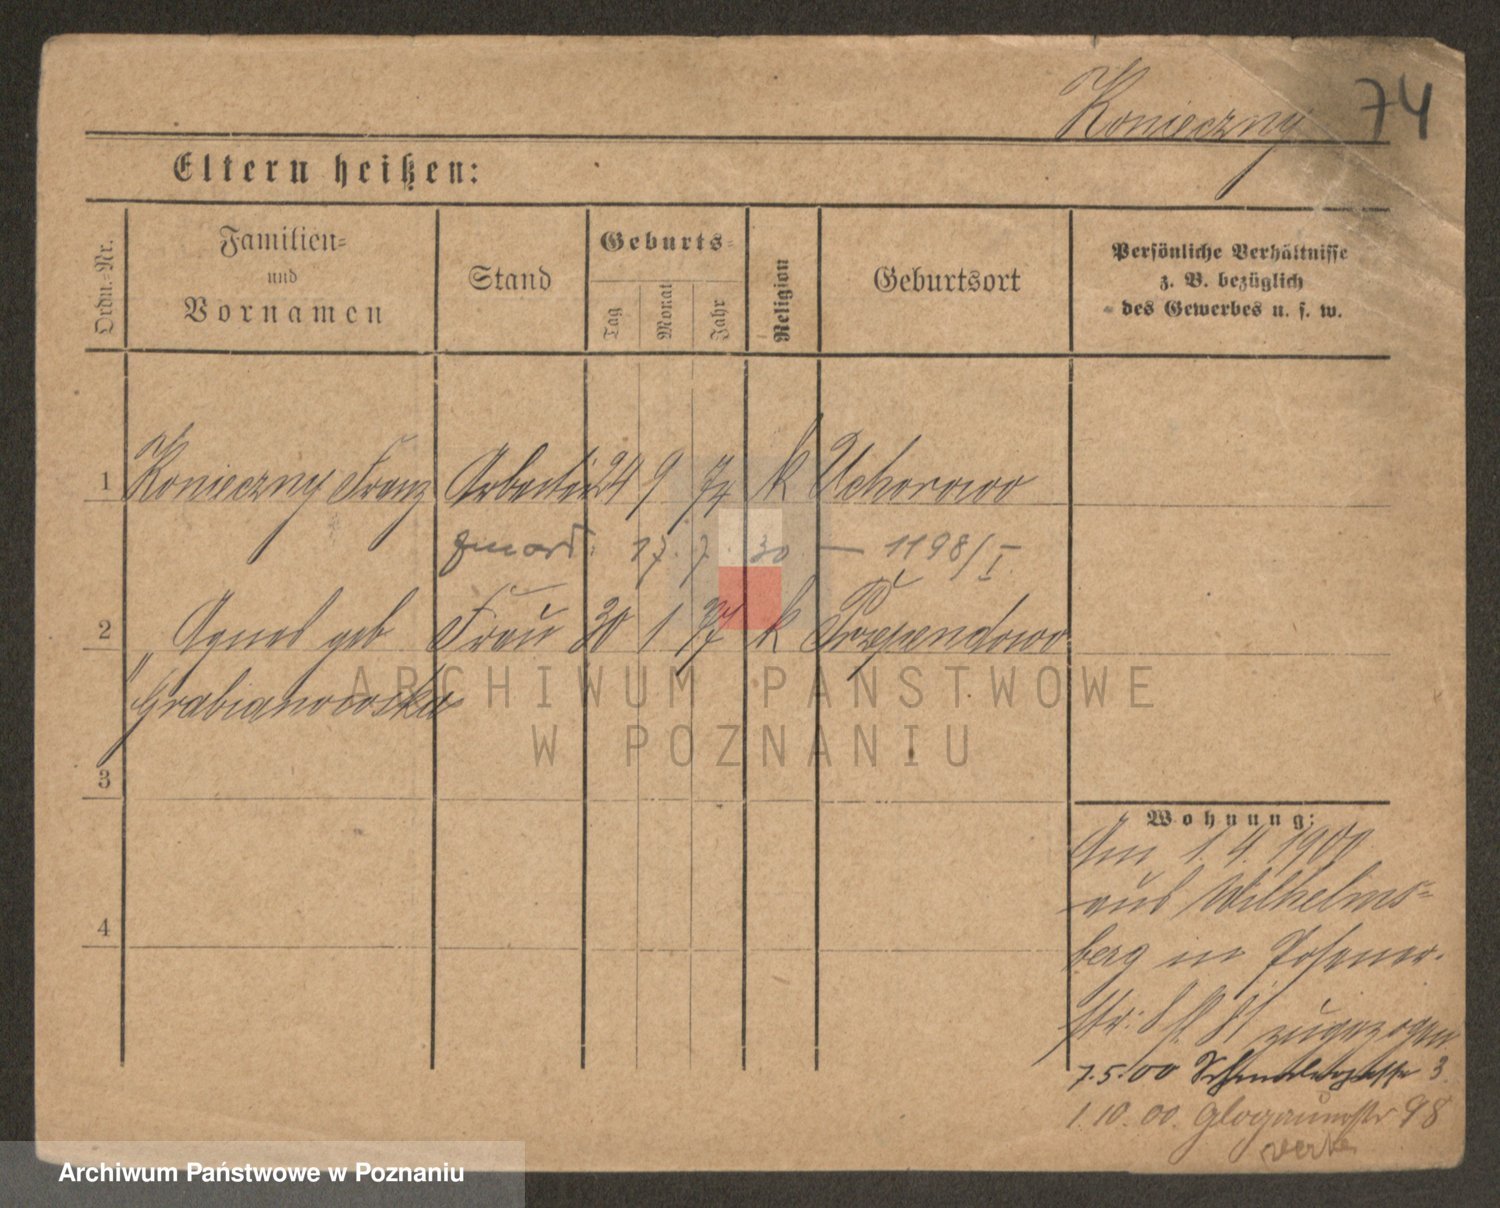 Konieczny 74
Eltern heißen:
Ordn.-Nr.
Familien-
und
Vornamen
Stand
Geburts-
Tag
Monat
Jahr
Religion
Geburtsort
Persönliche Verhältnisse
z. B. bezüglich
des Gewerbes u. s. w.
1 Konieczny Franz Arbeiter 24 9 74 k Uchorowo
zmarł. 17. 7. 30 — 1198/I.
2 " Agnes geb Frau 30 1 k
Grabianowska
ARCHIWUM PAŃSTWOWE
W POZNANIU
3
Wohnung:
Am 1. 4. 1900
aus Wilhelms-
berg in Posener-
str: zugezogen
4
7.5.00 3
1.10.00. Glogauerstr 98
Archiwum Państwowe w Poznaniu